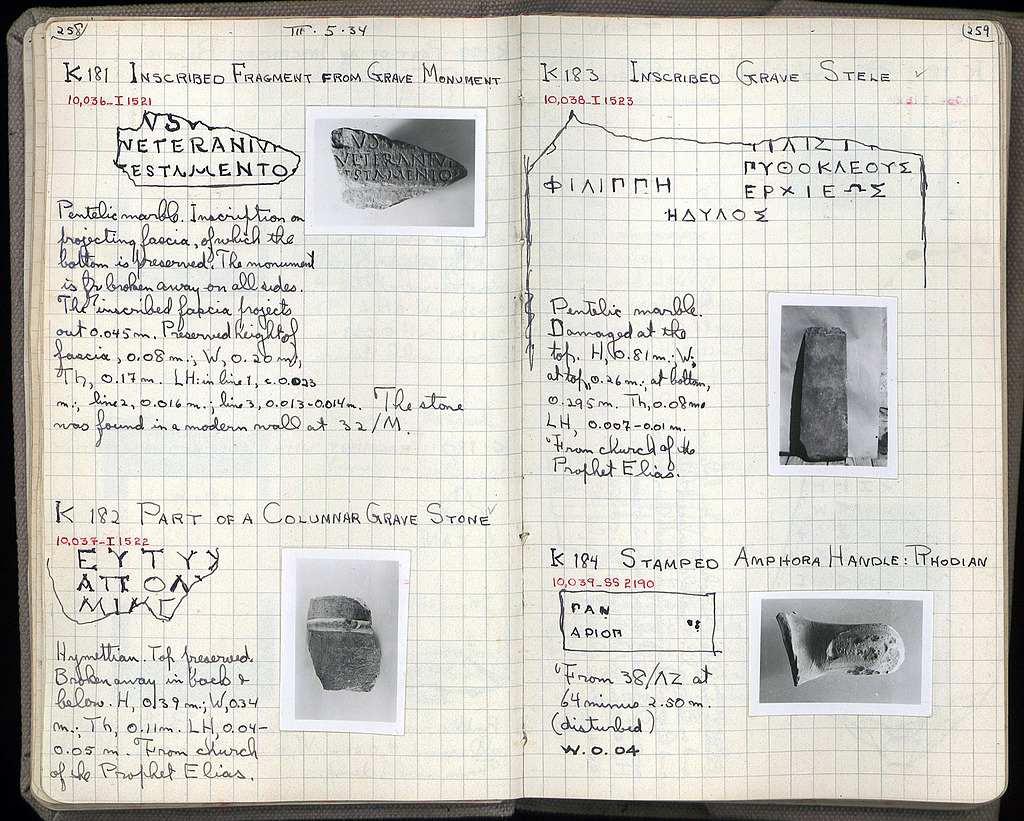 258
III · 5 · 34
K 181 INSCRIBED FRAGMENT FROM GRAVE MONUMENT
10,036-I 1521
VS
VETERANIV
TESTAMENTO
VS
VETERANIV
TESTAMENTO
Pentelic marble. Inscription on
projecting fascia, of which the
bottom is preserved. The monument
is broken away on all sides.
The inscribed fascia projects
out 0.045 m. Preserved height of
fascia, 0.08 m.; W, 0.20 m;
Th, 0.17 m. LH: in line 1, c. 0.023
m.; line 2, 0.016 m.; line 3, 0.013-0.014 m. The stone
was found in a modern wall at 32/M.
K 182 PART OF A COLUMNAR GRAVE STONE
10,037-I 1522
ΕΥΤΥΥ
ΑΠΟΛ
ΜΙΛΣ
Hymettian. Top preserved.
Broken away in back &
below. H, 0.39 m.; W, 0.34
m.; Th, 0.11 m. LH, 0.04-
0.05 m. From church
of the Prophet Elias.
259
K 183 INSCRIBED GRAVE STELE
10,038-I 1523
ΦΙΛΙΠΠΗ
ΠΥΘΟΚΛΕΟΥΣ
ΕΡΧΙΕΩΣ
ΗΔΥΛΟΣ
Pentelic marble.
Damaged at the
top. H, 0.81 m.; W,
at top, 0.26 m.; at bottom,
0.295 m. Th, 0.08 m.
LH, 0.007-0.01 m.
"From church of the
Prophet Elias.
K 184 STAMPED AMPHORA HANDLE: RHODIAN
10,039-SS 2190
ΠΑΝ
ΑΡΙΟΠ
"From 38/ΛΖ at
64 minus 2.50 m.
(disturbed)
W. 0.04